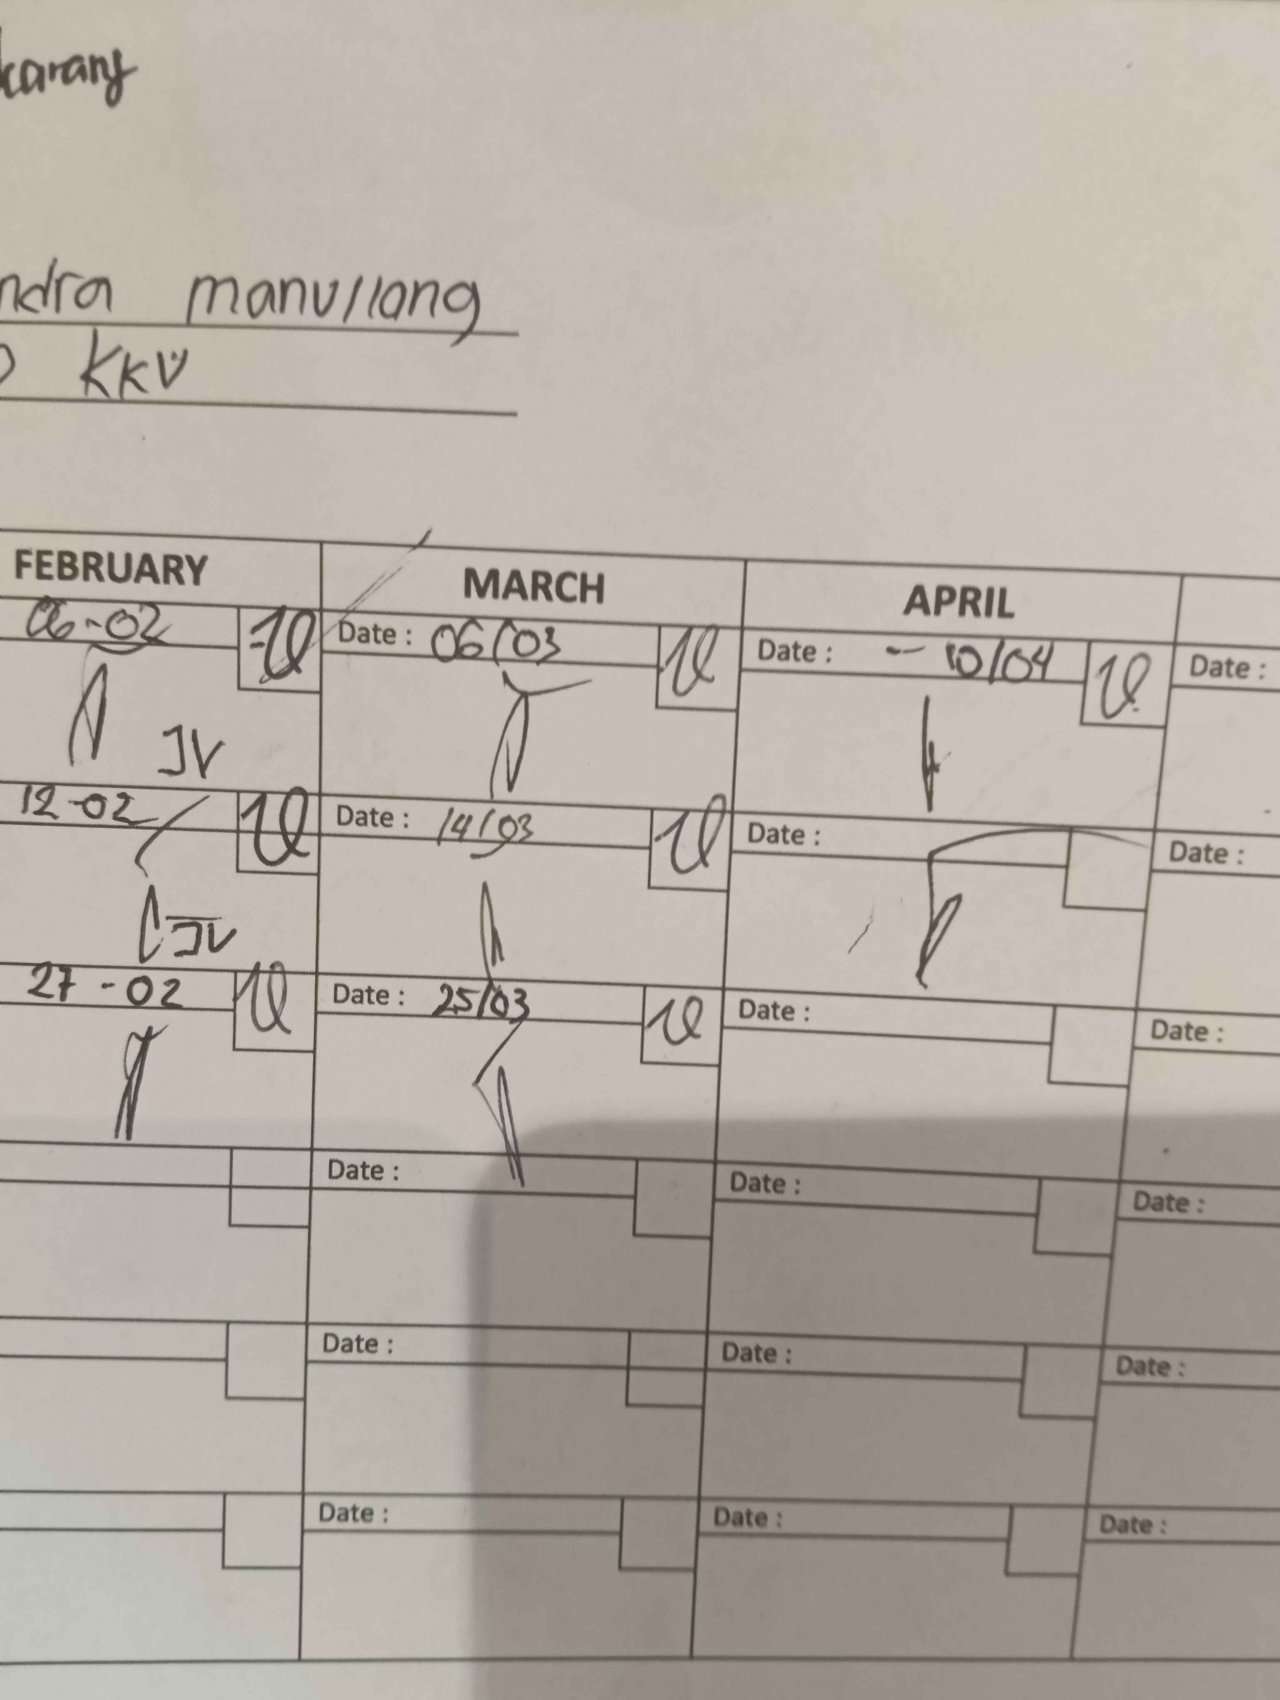 karang
ndra manullang
KKV
FEBRUARY MARCH APRIL
06-02 Date : 06/03 Date : 10/04 Date :
JV
12-02 Date : 14/03 Date : Date :
JV
27-02 Date : 25/03 Date : Date :
Date : Date : Date :
Date : Date : Date :
Date : Date : Date :